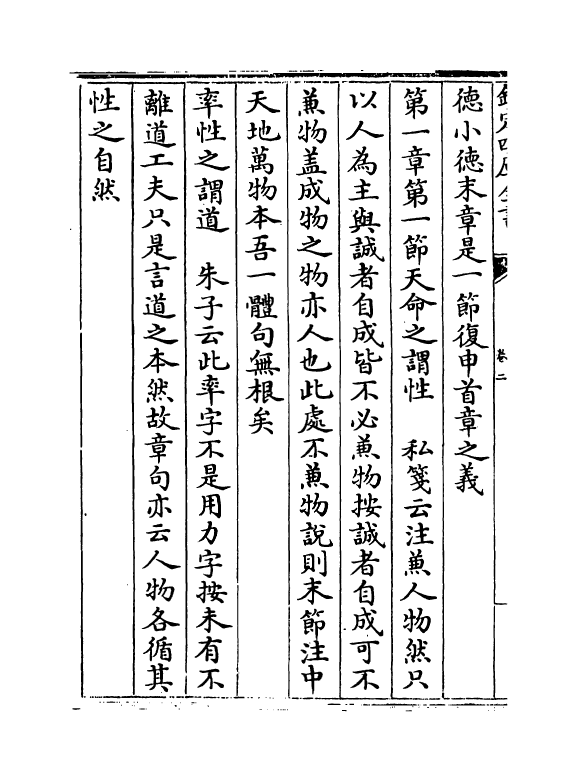 欽定四庫全書
卷二
德小德末章是一節復申首章之義
第一章第一節天命之謂性　私箋云注蒹人物然只
以人為主與誠者自成皆不必蒹物按誠者自成可不
蒹物盖成物之物亦人也此處不蒹物說則末節注中
天地萬物本吾一體句無根矣
率性之謂道　朱子云此率字不是用力字按未有不
離道工夫只是言道之本然故章句亦云人物各循其
性之自然